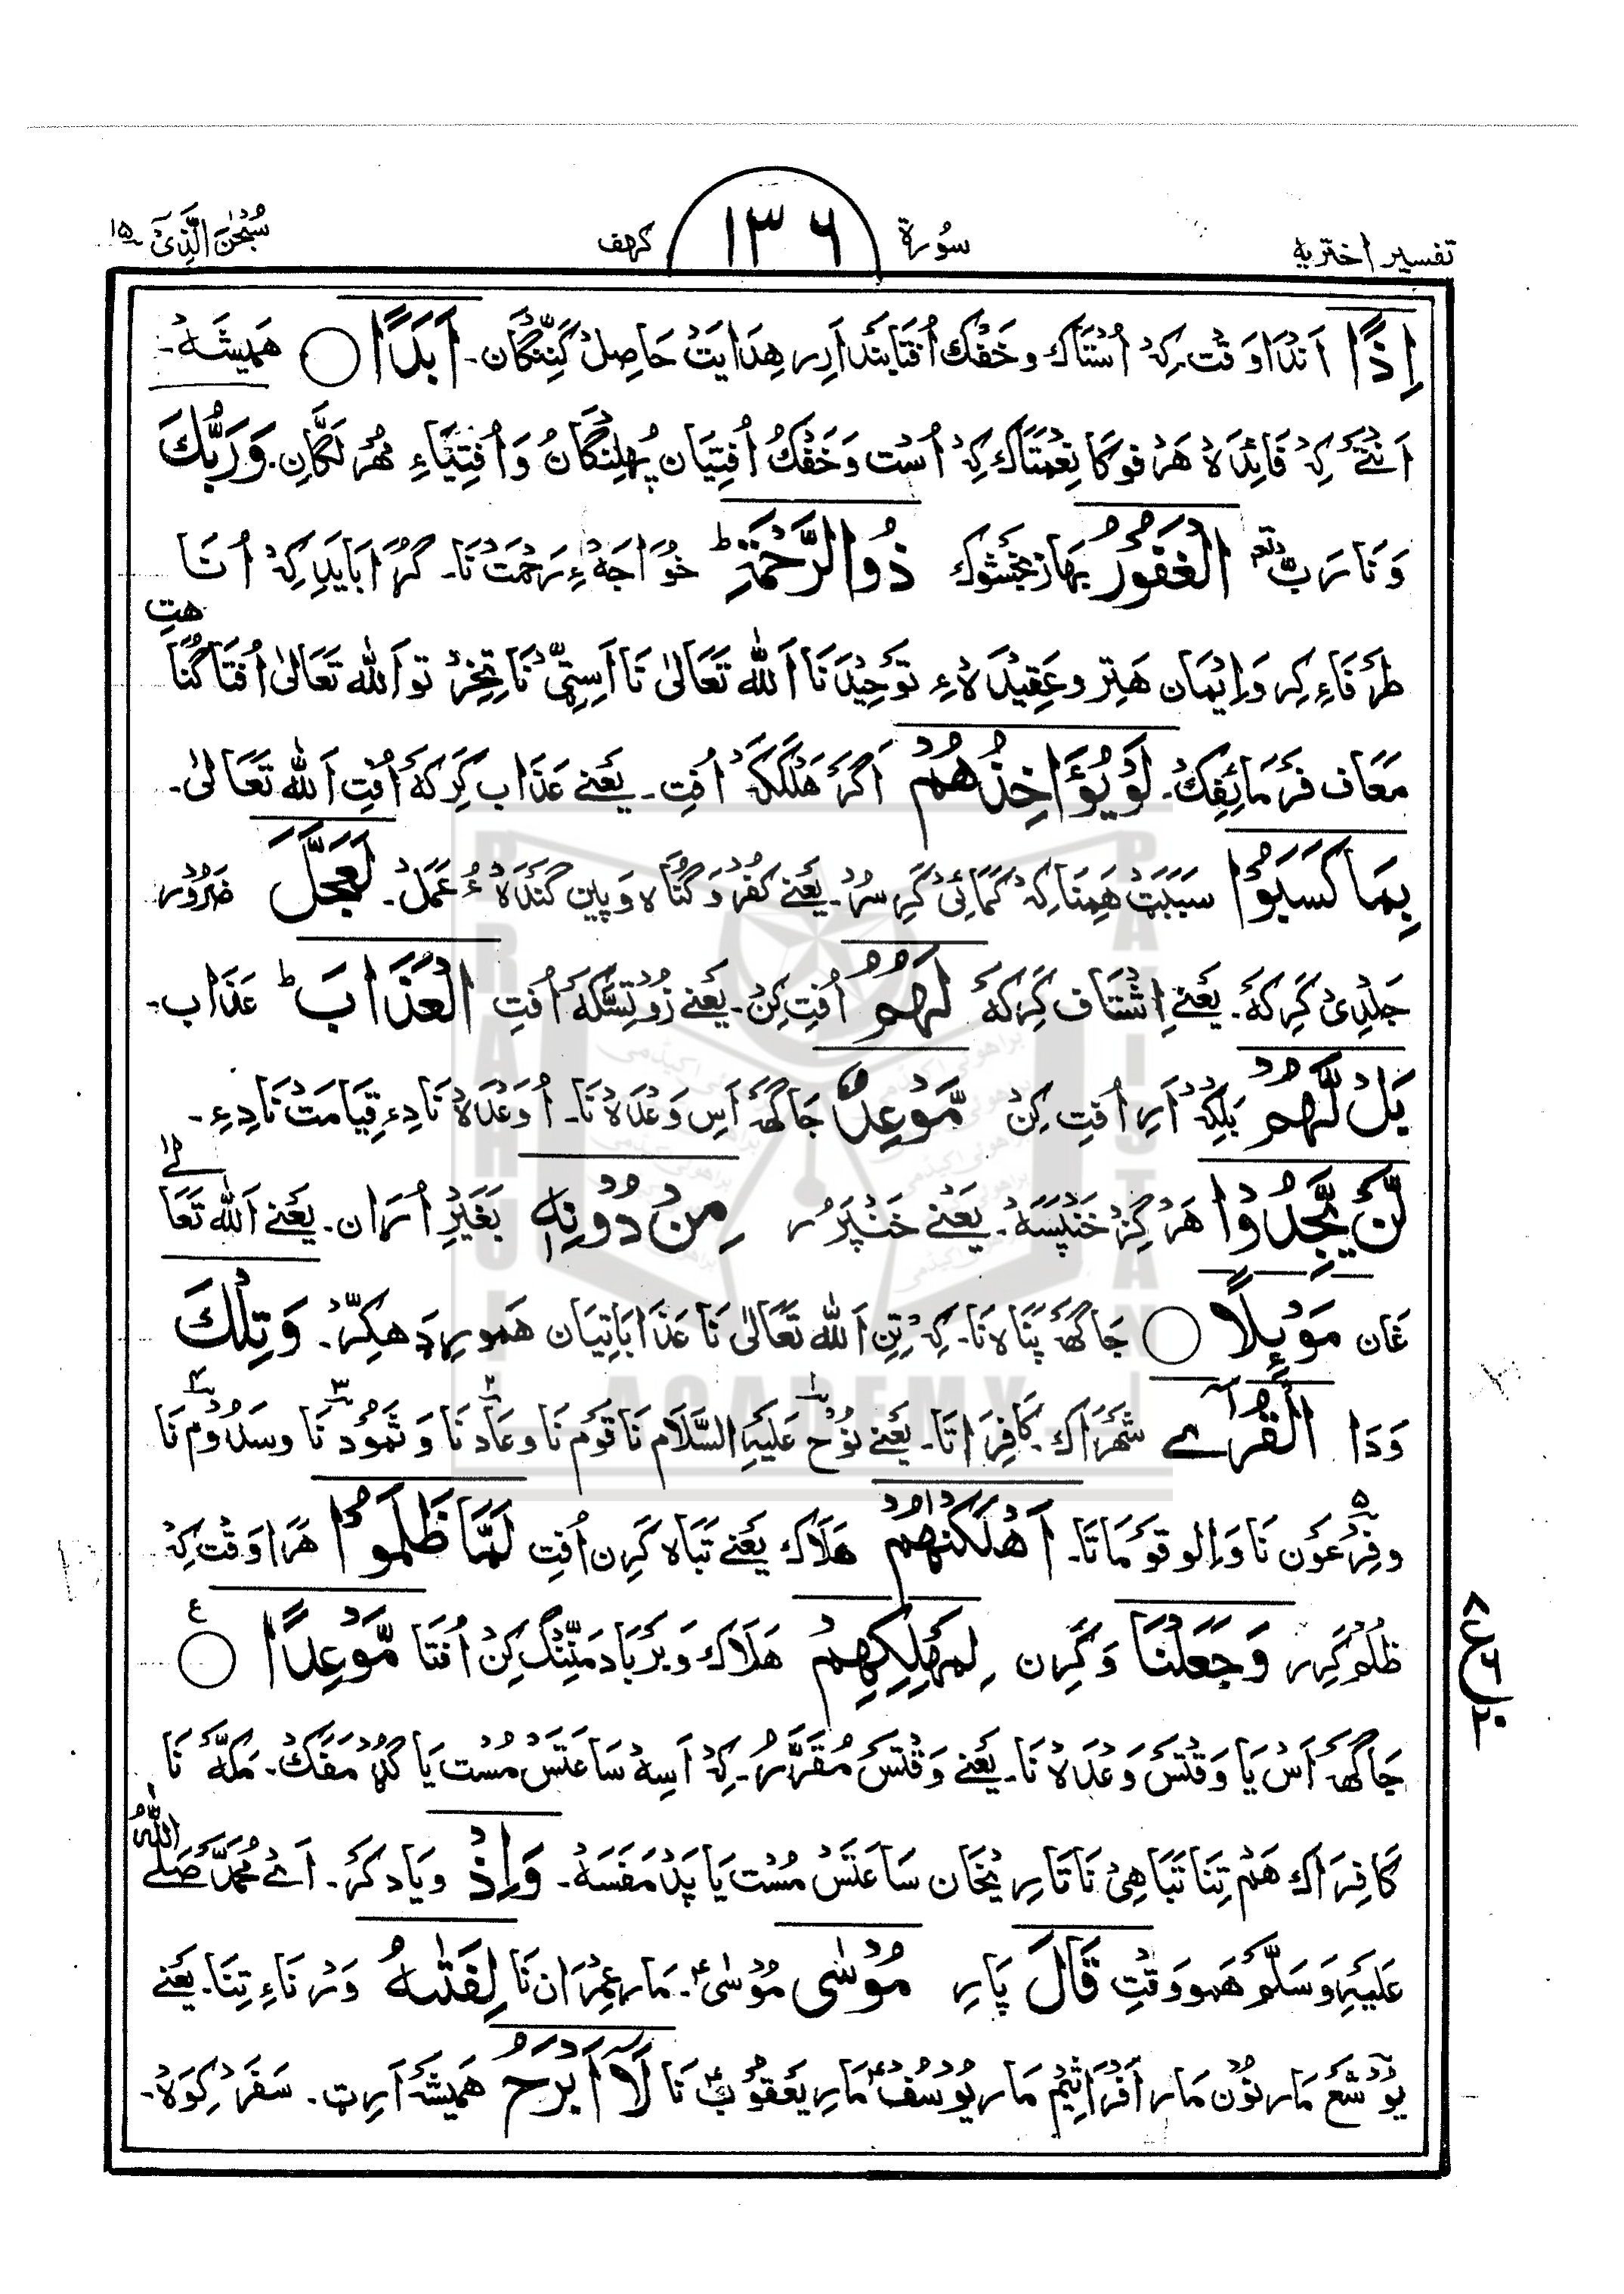 تفسیر اختریه
سُورة
۱۳۶
کہف
سُبْحٰنَ الَّذِیْ ۱۵
اِذًا اَندَا وَقْت کِہ اُسْتَاک وخَفْک اُفتَا بَندَ اَرِر هِدَایَتْ حَاصِلْ کَنِنْگان۔ اَبَدًا ○ هَمیشَہ۔
اَنتَےْ کِہ فَائِدَہ هَرْ فوکَا نِعْمتَاک کِہ اُسْت وَخَفْکُ اُفتِیَان پُهلِنْگانُ وَ اُفتِیَاءِ مُهر لَگّان۔ وَرَبُّكَ
وَنَا رَبّ الْغَفُوْرُ بهَاز بَخشوک ذُو الرَّحْمَةِ ط خُوَاجَہ ءِ رَحْمَت نَا۔ گُڑَا بَایَدِ کِہ اُنَا
طَرَفَاءِ کِر وَ اِیْمَان هَتِر وعَقِیْدَہ ءِ تَوحِیْدَ نَا اَللّٰہ تَعَالیٰ نَا اَسِتِیّ نَا تِخِرْ تو اَللّٰہ تَعَالیٰ اُفتَا گُنَا هتِ
مَعَاف فَرمَائِفِکْ۔ لَوْ يُؤَاخِذُهُمْ اَگَر هَلْکَکہ اُفتِ۔ یَعنے عَذَاب کَرِکہَ اُفتِ اَللّٰہ تَعَالیٰ۔
بِمَا كَسَبُوْا سَبَبَتْ هَمِنَا کِہ کَمَائِی کَرِسُرْ۔ یَعنے کُفْرْ وَ گُنَاہ وَ پِین گَندَہ ءُ عَمَلْ۔ لَعَجَّلَ ضَرُوْر
جَلْدِی کَرِکہَ۔ یَعنے اِشْتَاف کَرِکہَ لَهُمُ اُفتِ کِنْ۔ یَعنے زُوتِسَّکہَ اُفتِ الْعَذَابَ ط عَذَاب۔
بَلْ لَّهُمْ بَلکِہ اَرِ اُفتِ کِنْ مَّوْعِدٌ جَاگہَ اَس وَعْدَہ نَا۔ اُ وَعْدَہ نَا دِءِ قِیَامَتْ نَا دِءِ۔
لَّنْ يَّجِدُوْا هَرگِزْ خَنْپَسَہ۔ یَعنے خَنْپَرُر مِنْ دُوْنِهٖ بَغَیرِ اُرَان۔ یَعنے اَللّٰہ تَعَالیٰ
غَان مَوْئِلًا ○ جَاگہَ پَنَاہ نَا۔ کِہ تِن اَللّٰہ تَعَالیٰ نَا عَذَابَاتِیَان هَمورِ دَهکِرّ۔ وَتِلْكَ
وَدَا الْقُرٰٓى شَهرَاک۔ کَافِرَاتَا۔ یَعنے نُوح۱ عَلَیہِ السَّلَام نَا قَوم نَا وعَاد۲ نَا وَ ثَمُود۳ نَا وسَدُوم۴ نَا
وفِرعَون۵ نَا وَ اِلو قَومَاتَا۔ اَهْلَكْنٰهُمْ هَلَاک یَعنے تَبَاہ کَرِن اُفتِ لَمَّا ظَلَمُوْا هَرَا وَقْت کِہ
ظُلم کَرِر وَجَعَلْنَا وَ کَرِن لِمَهْلِكِهِمْ هَلَاک وَ بَربَاد مَنِّنگ کِن اُفتَا مَّوْعِدًا ○ ع
جَاگہَ اَسْ یَا وَقْتَسْ وَعْدَہ نَا۔ یَعنے وَقْتَسْ مُقَرَّرُ۔ کِہ اَسِہ سَاعَتَسْ مُسْت یَا گُڈ مَفَکْ۔ مَکَّہ نَا
کَافِرَاک هَم تِنَا تَبَاهِی نَا تَارِیْخَان سَاعَتَسْ مُسْت یَا پَدْ مَفَسَہ۔ وَاِذْ وِیَاد کَر۔ اَے مُحَمَّد صَلَّے اللّٰہُ
عَلَیہِ وَسَلَّمَ هَمو وَقْتِ قَالَ پَارِ مُوْسٰى مُوْسٰی۔ مَار عِمْرَان نَا لِفَتٰىهُ وَرنَاءِ تِنَا۔ یَعنے
یُوشَعْ مَار نُون مَار اَفرَاثِیم مَار یُوسُف مَارِ یَعقُوب نَا لَآ اَبْرَحُ هَمیشَہَ اَرِت۔ سَفَرْ کِوَہ۔